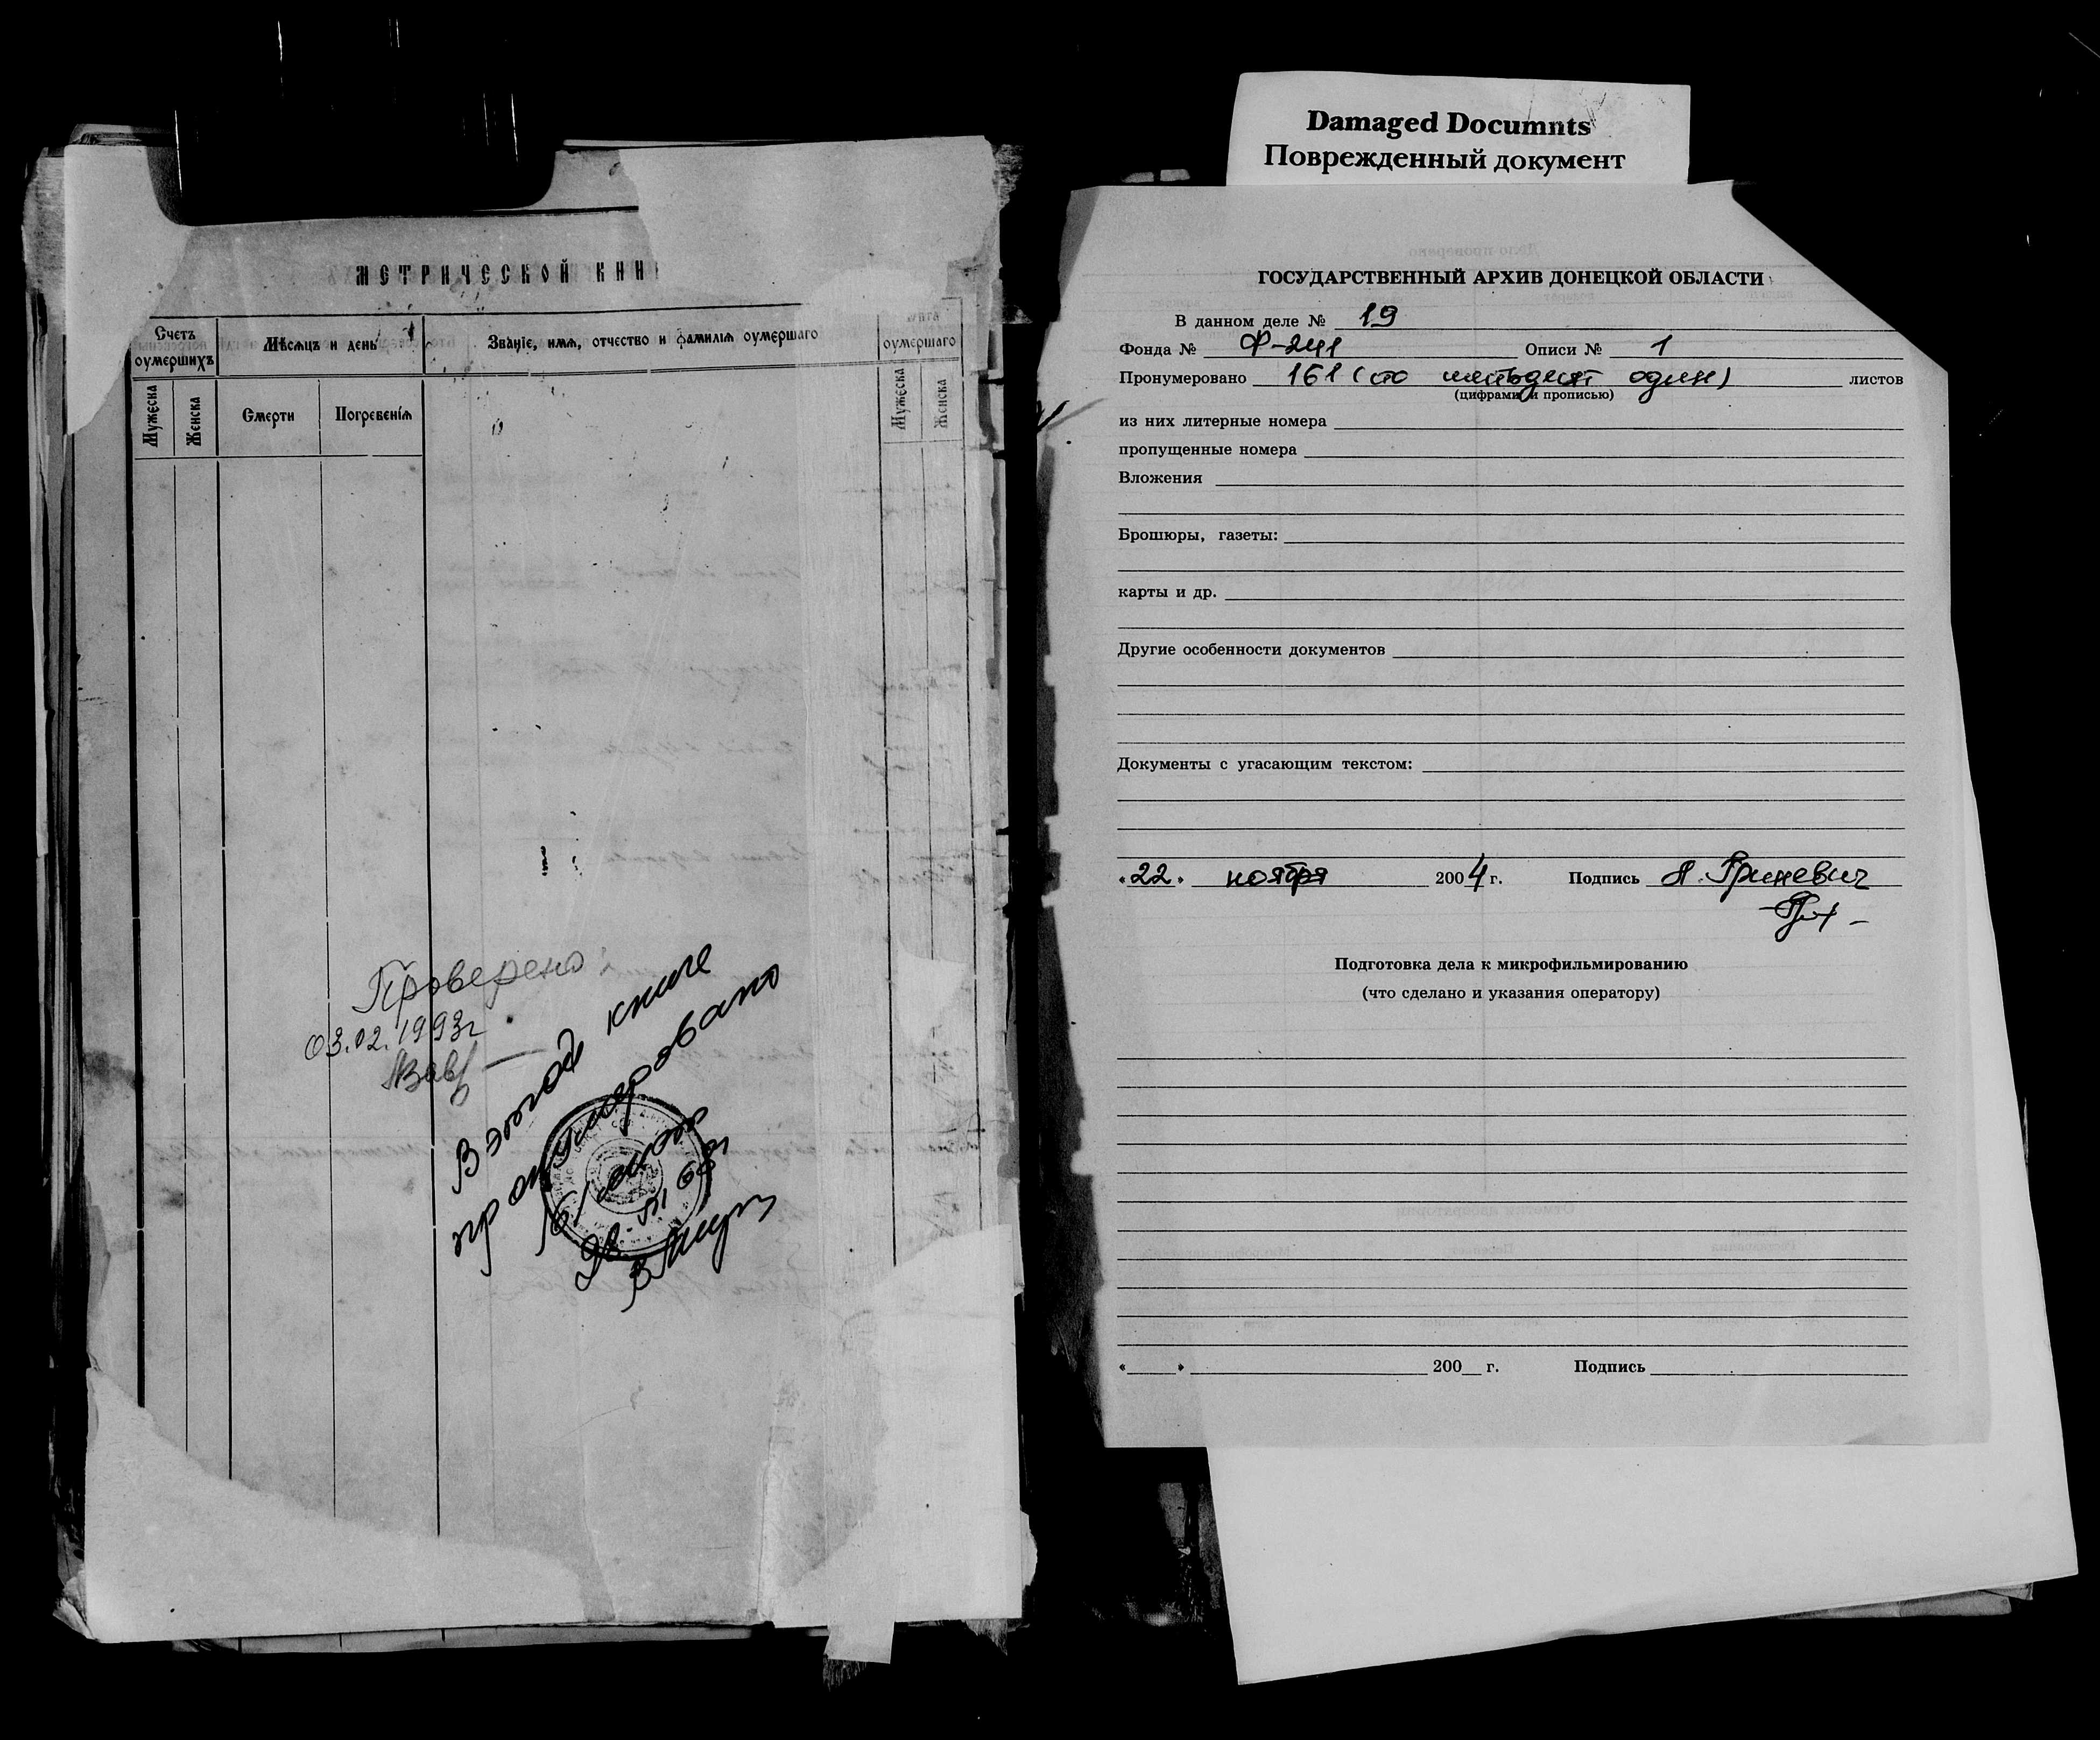 МЕТРИЧЕСКОЙ КНИ
Счетъ оумершихъ
Мѣсяцъ и день
Званіе, имя, отчество и фамилія оумершаго
оумершаго
Мужеска
Женска
Смерти
Погребенія
Мужеска
Женска
Проверено
03.02.1993г
В этой книге
пронумеровано
161 листа
Damaged Documnts
Поврежденный документ
ГОСУДАРСТВЕННЫЙ АРХИВ ДОНЕЦКОЙ ОБЛАСТИ
В данном деле № 19
Фонда № Ф-241 Описи № 1
Пронумеровано 161 (сто шестьдесят один) листов
(цифрами и прописью)
из них литерные номера
пропущенные номера
Вложения
Брошюры, газеты:
карты и др.
Другие особенности документов
Документы с угасающим текстом:
«22» ноября 2004 г. Подпись А. Гриневич
Подготовка дела к микрофильмированию
(что сделано и указания оператору)
«    »  200  г. Подпись